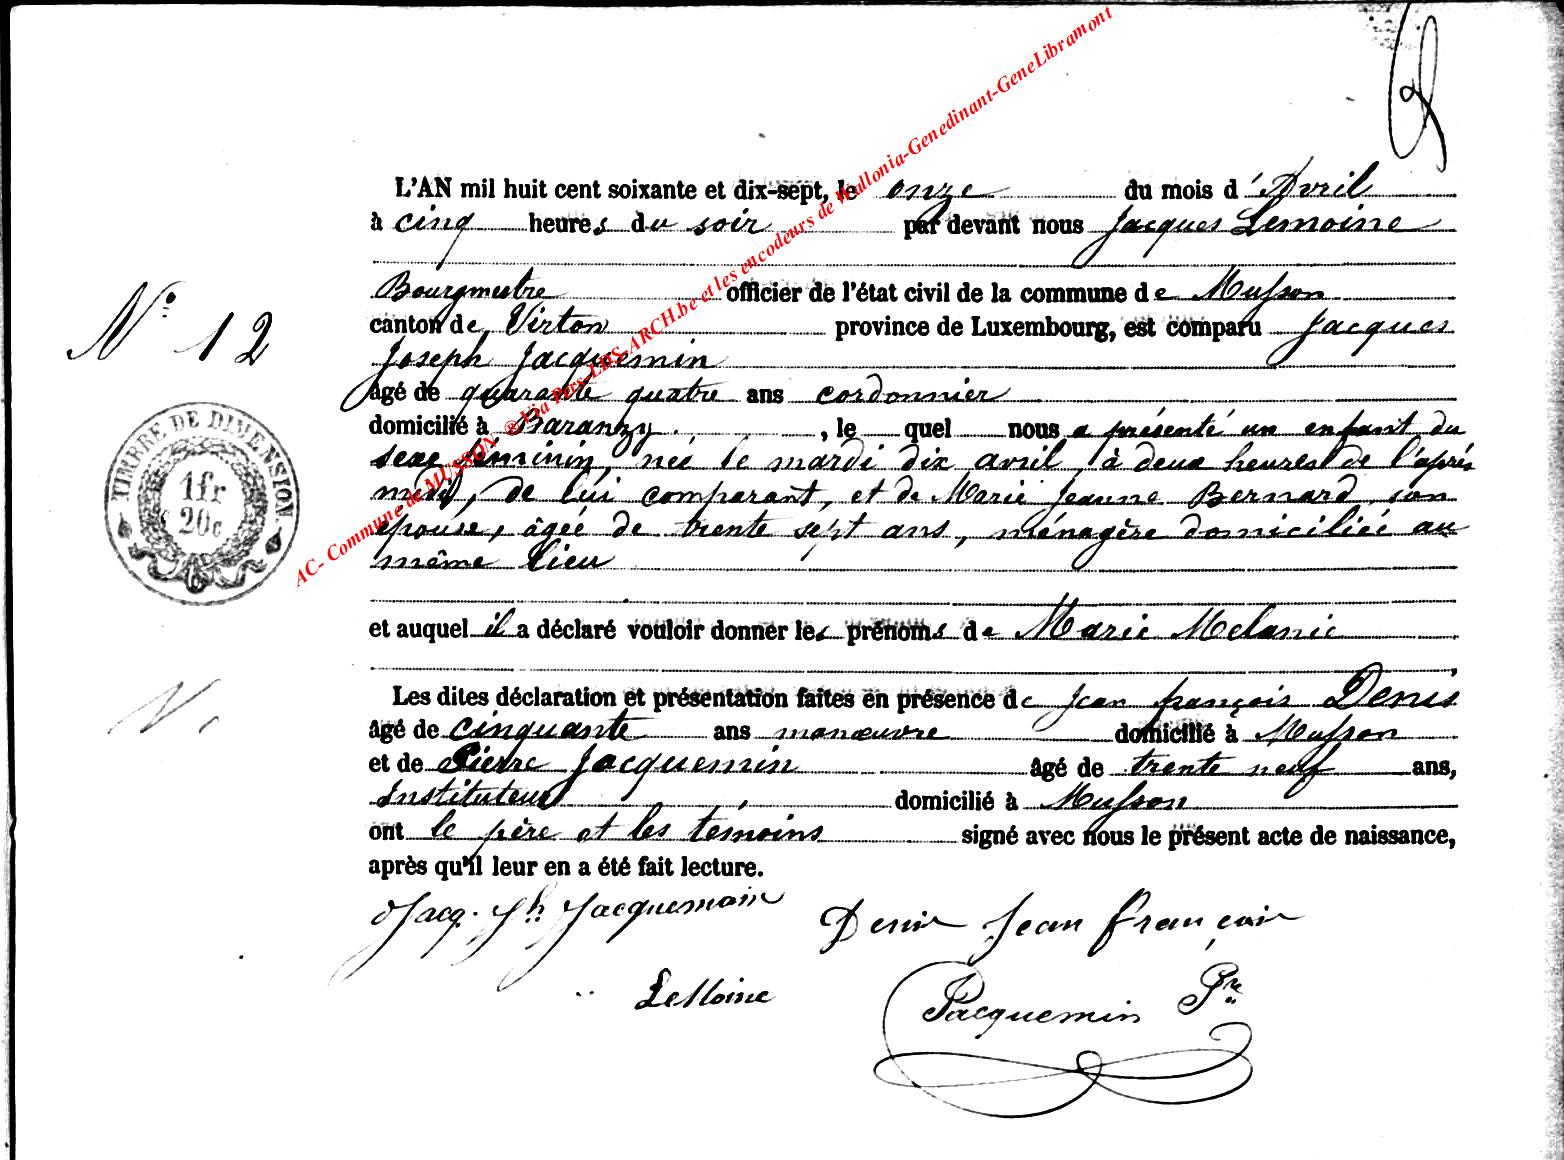 L'AN mil huit cent soixante et dix-sept, le onze du mois d'Avril
à cinq heures du soir par devant nous Jacques Lemoine
Bourgmestre officier de l'état civil de la commune de Musson
N° 12
canton de Virton province de Luxembourg, est comparu Jacques
Joseph Jacquemin
âgé de quarante quatre ans cordonnier
domicilié à Baranzy, le quel nous a présenté un enfant du
sexe féminin, née le mardi dix avril, à deux heures de l'après
midi, de lui comparant, et de Marie Jeanne Bernard, son
épouse, âgée de trente sept ans, ménagère domiciliée au
même lieu
TIMBRE DE DIMENSION.
1fr
20c
et auquel il a déclaré vouloir donner les prénoms de Marie Melanie
Les dites déclaration et présentation faites en présence de Jean françois Denis
âgé de cinquante ans manœuvre domicilié à Musson
et de Pierre Jacquemin âgé de trente neuf ans,
Instituteur domicilié à Musson
ont le père et les témoins signé avec nous le présent acte de naissance,
après qu'il leur en a été fait lecture.
Jacq. Jh Jacquemain Denis Jean françois
LeMoine Jacquemin Pre
AC- Commune de MUSSON ® Via Pers-LDS-ARCH.be et les encodeurs de Wallonia-Genedinant-GeneLibramont